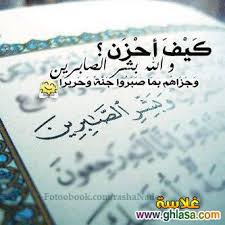 كَيْفَ أَحْزَن ؟
و الله بشر الصابرين
وَجَزَاهُم بِمَا صَبَرُوا جَنَّةً وَحَرِيرًا
وَبَشِّرِ الصَّابِرِينَ
Fotoobook.com/rashaNad
غلاسة
www.ghlasa.com